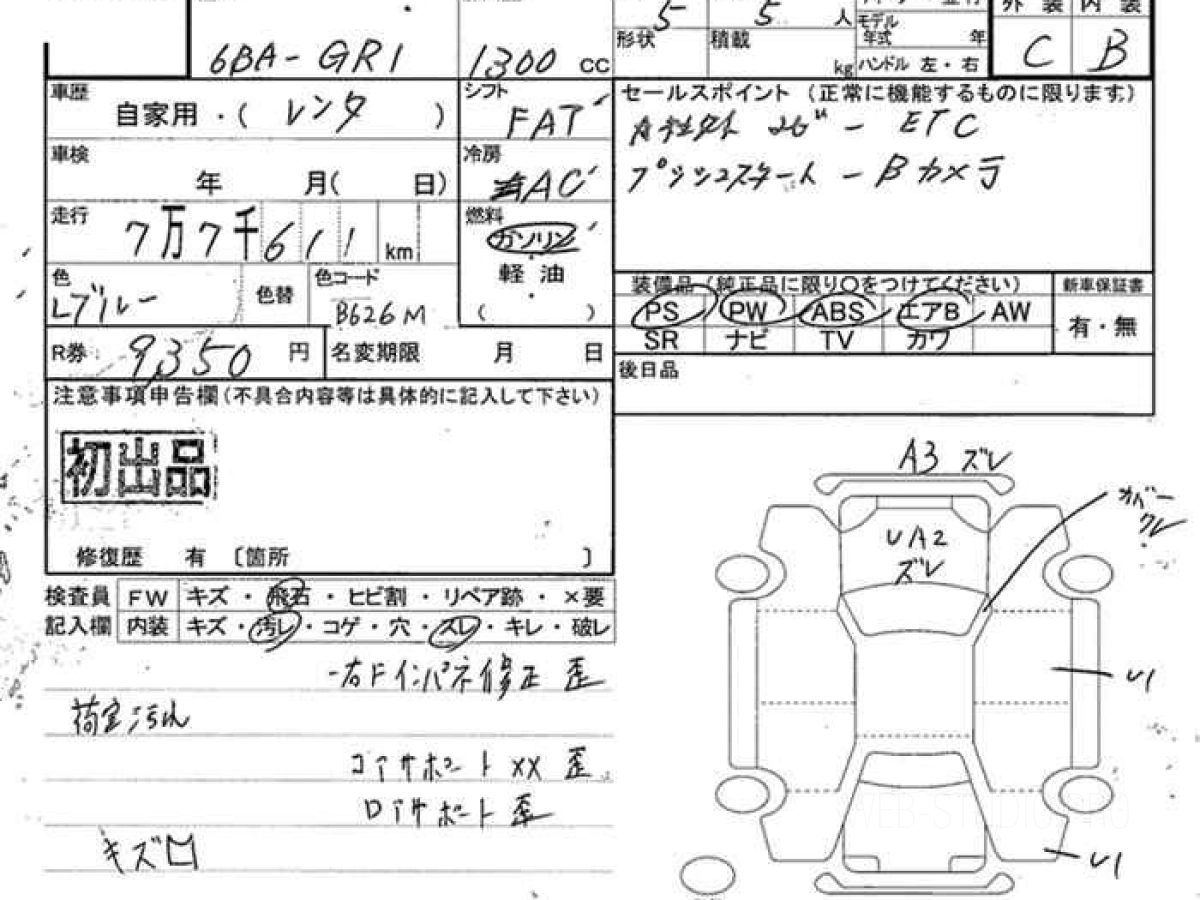 5 5 人
モデル
年式 年
外装 内装
6BA-GR1
1300 cc
形状 積載 kg
ハンドル 左・右
C B
車歴 自家用・( レンタ )
シフト FAT
セールスポイント (正常に機能するものに限ります。)
ETC
プッシュスタート - Bカメラ
車検 年 月( 日)
冷房 AC
走行 7万7千611 km
燃料 ガソリン
軽・油
( )
色 Lブルー
色替
色コード B626M
装備品 (純正品に限り○をつけてください)
新車保証書
PS PW ABS エアB AW
有・無
SR ナビ TV カワ
R券 9,350 円
名変期限 月 日
後日品
注意事項申告欄(不具合内容等は具体的に記入して下さい)
初出品
修復歴 有 〔箇所 〕
検査員 FW キズ・飛石・ヒビ割・リペア跡・×要
記入欄 内装 キズ・汚レ・コゲ・穴・スレ・キレ・破レ
右Fインパネ修正 歪
荷室汚れ
コアサポート XX 歪
ロアサポート 歪
キズ
A3 ズレ
カバー
ワレ
UA2
ズレ
U1
U1
WEB-STUDIO